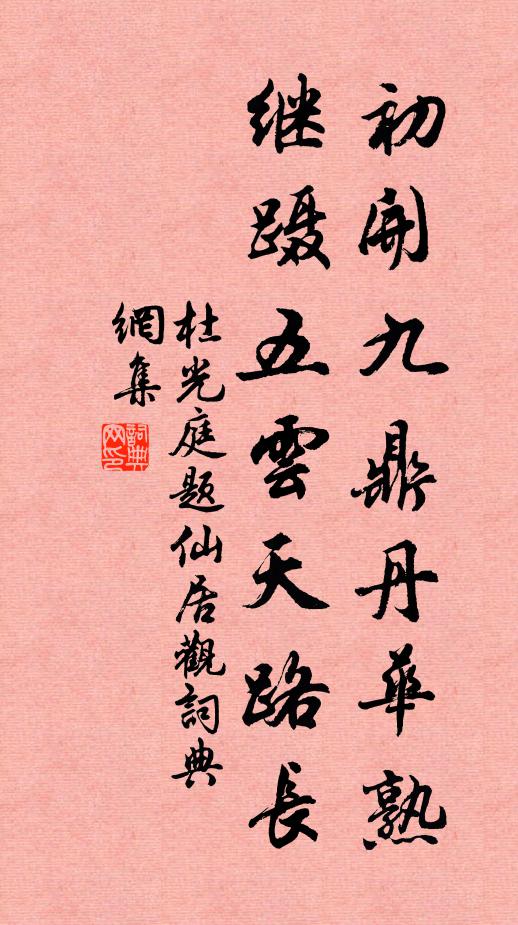 初開九鼎丹華熟
继蹑五雲天路長
杜光庭題仙居觀詞典
網集
詞典
网印